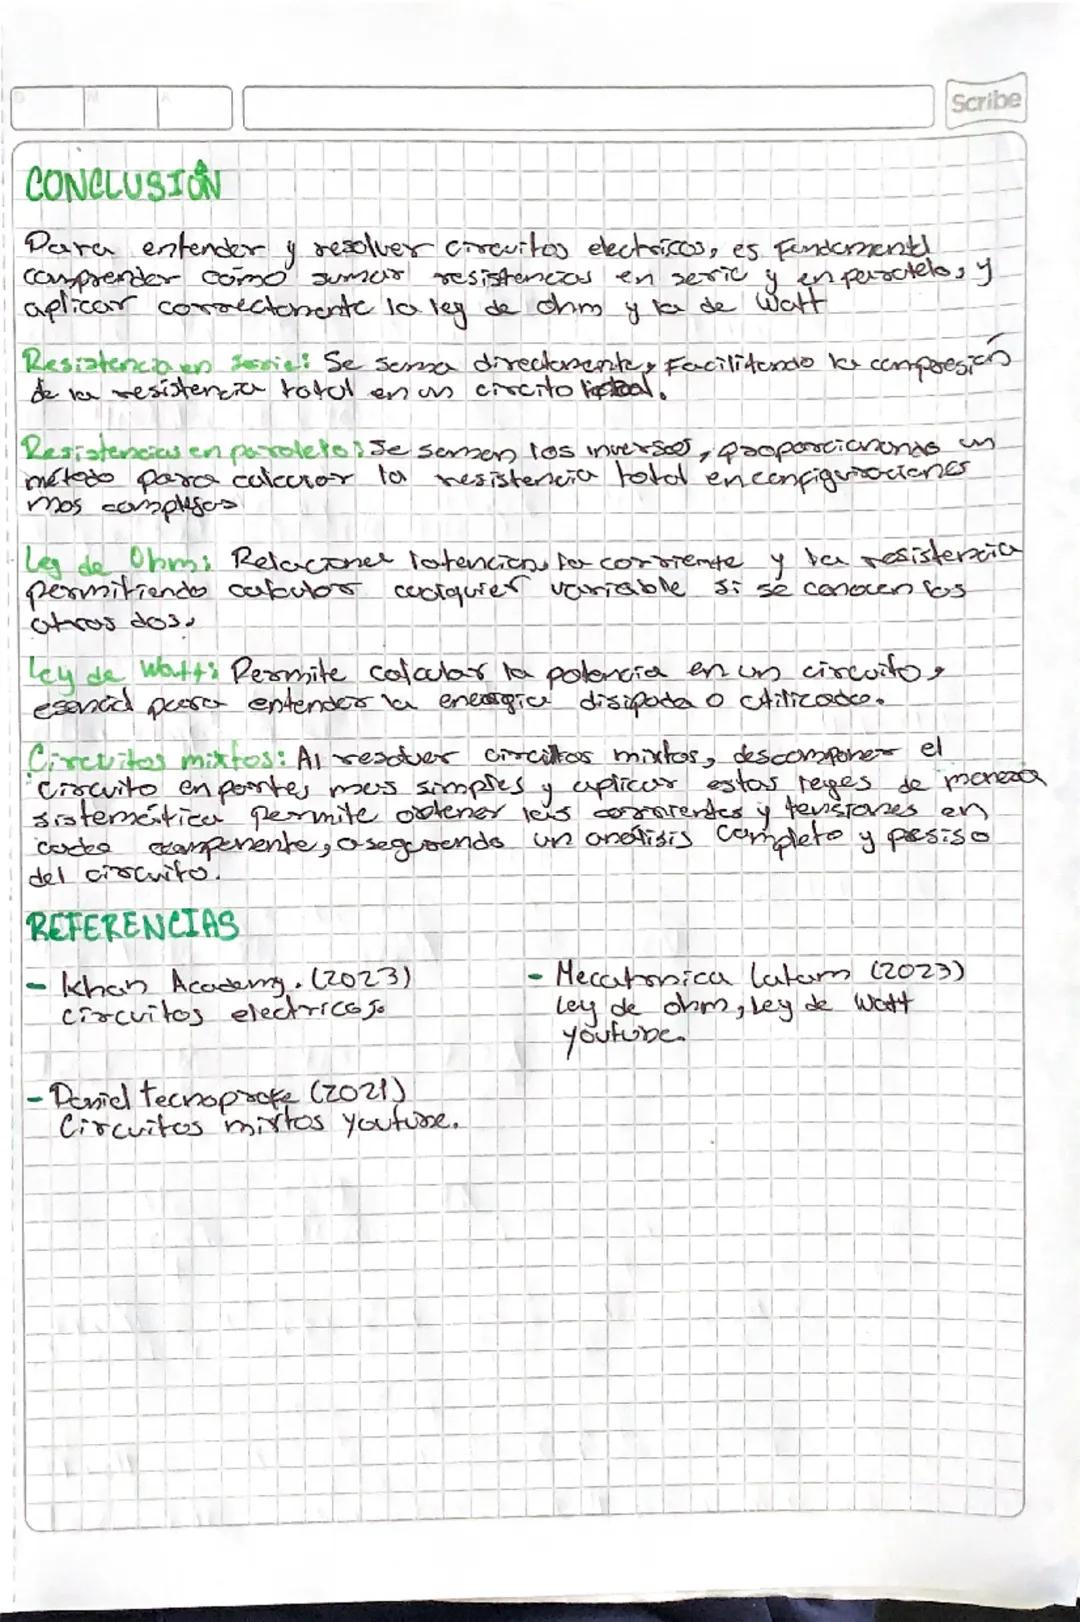 Scribe
CONCLUSIÓN
Para entender y resolver circuitos electricos, es Fundamental
comprender como sumar resistencias en serie y en paralelo, y
aplicar correctamente la ley de ohm y la de Watt
Resistencia en serie: Se suma directamente, Facilitando la compresión
de la resistencia total en un circito
Resistencias en paralelo: Se suman los inversos, proporcionando un
método para calcular la resistencia total en configuraciones
mas complejas
Ley de Ohm: Relaciona la tencion, la corriente y la resistencia
permitiendo calcular cualquier variable si se conocen las
otras dos.
Ley de Watt: Permite calcular la potencia en un circuito,
esencial para entender la energia disipada o utilizada.
Circuitos mixtos: Al resolver circuitos mixtos, descomponer el
circuito en partes mas simples y aplicar estas leyes de manera
sistemática permite obtener las corrientes y tensiones en
cada componente, asegurando un análisis completo y presiso
del circuito.
REFERENCIAS
- Khan Academy. (2023)
circuitos electricos.
- Mecatronica latam (2023)
ley de ohm, ley de Watt
youtube.
- Daniel tecnoprofe (2021)
Circuitos mixtos youtube.